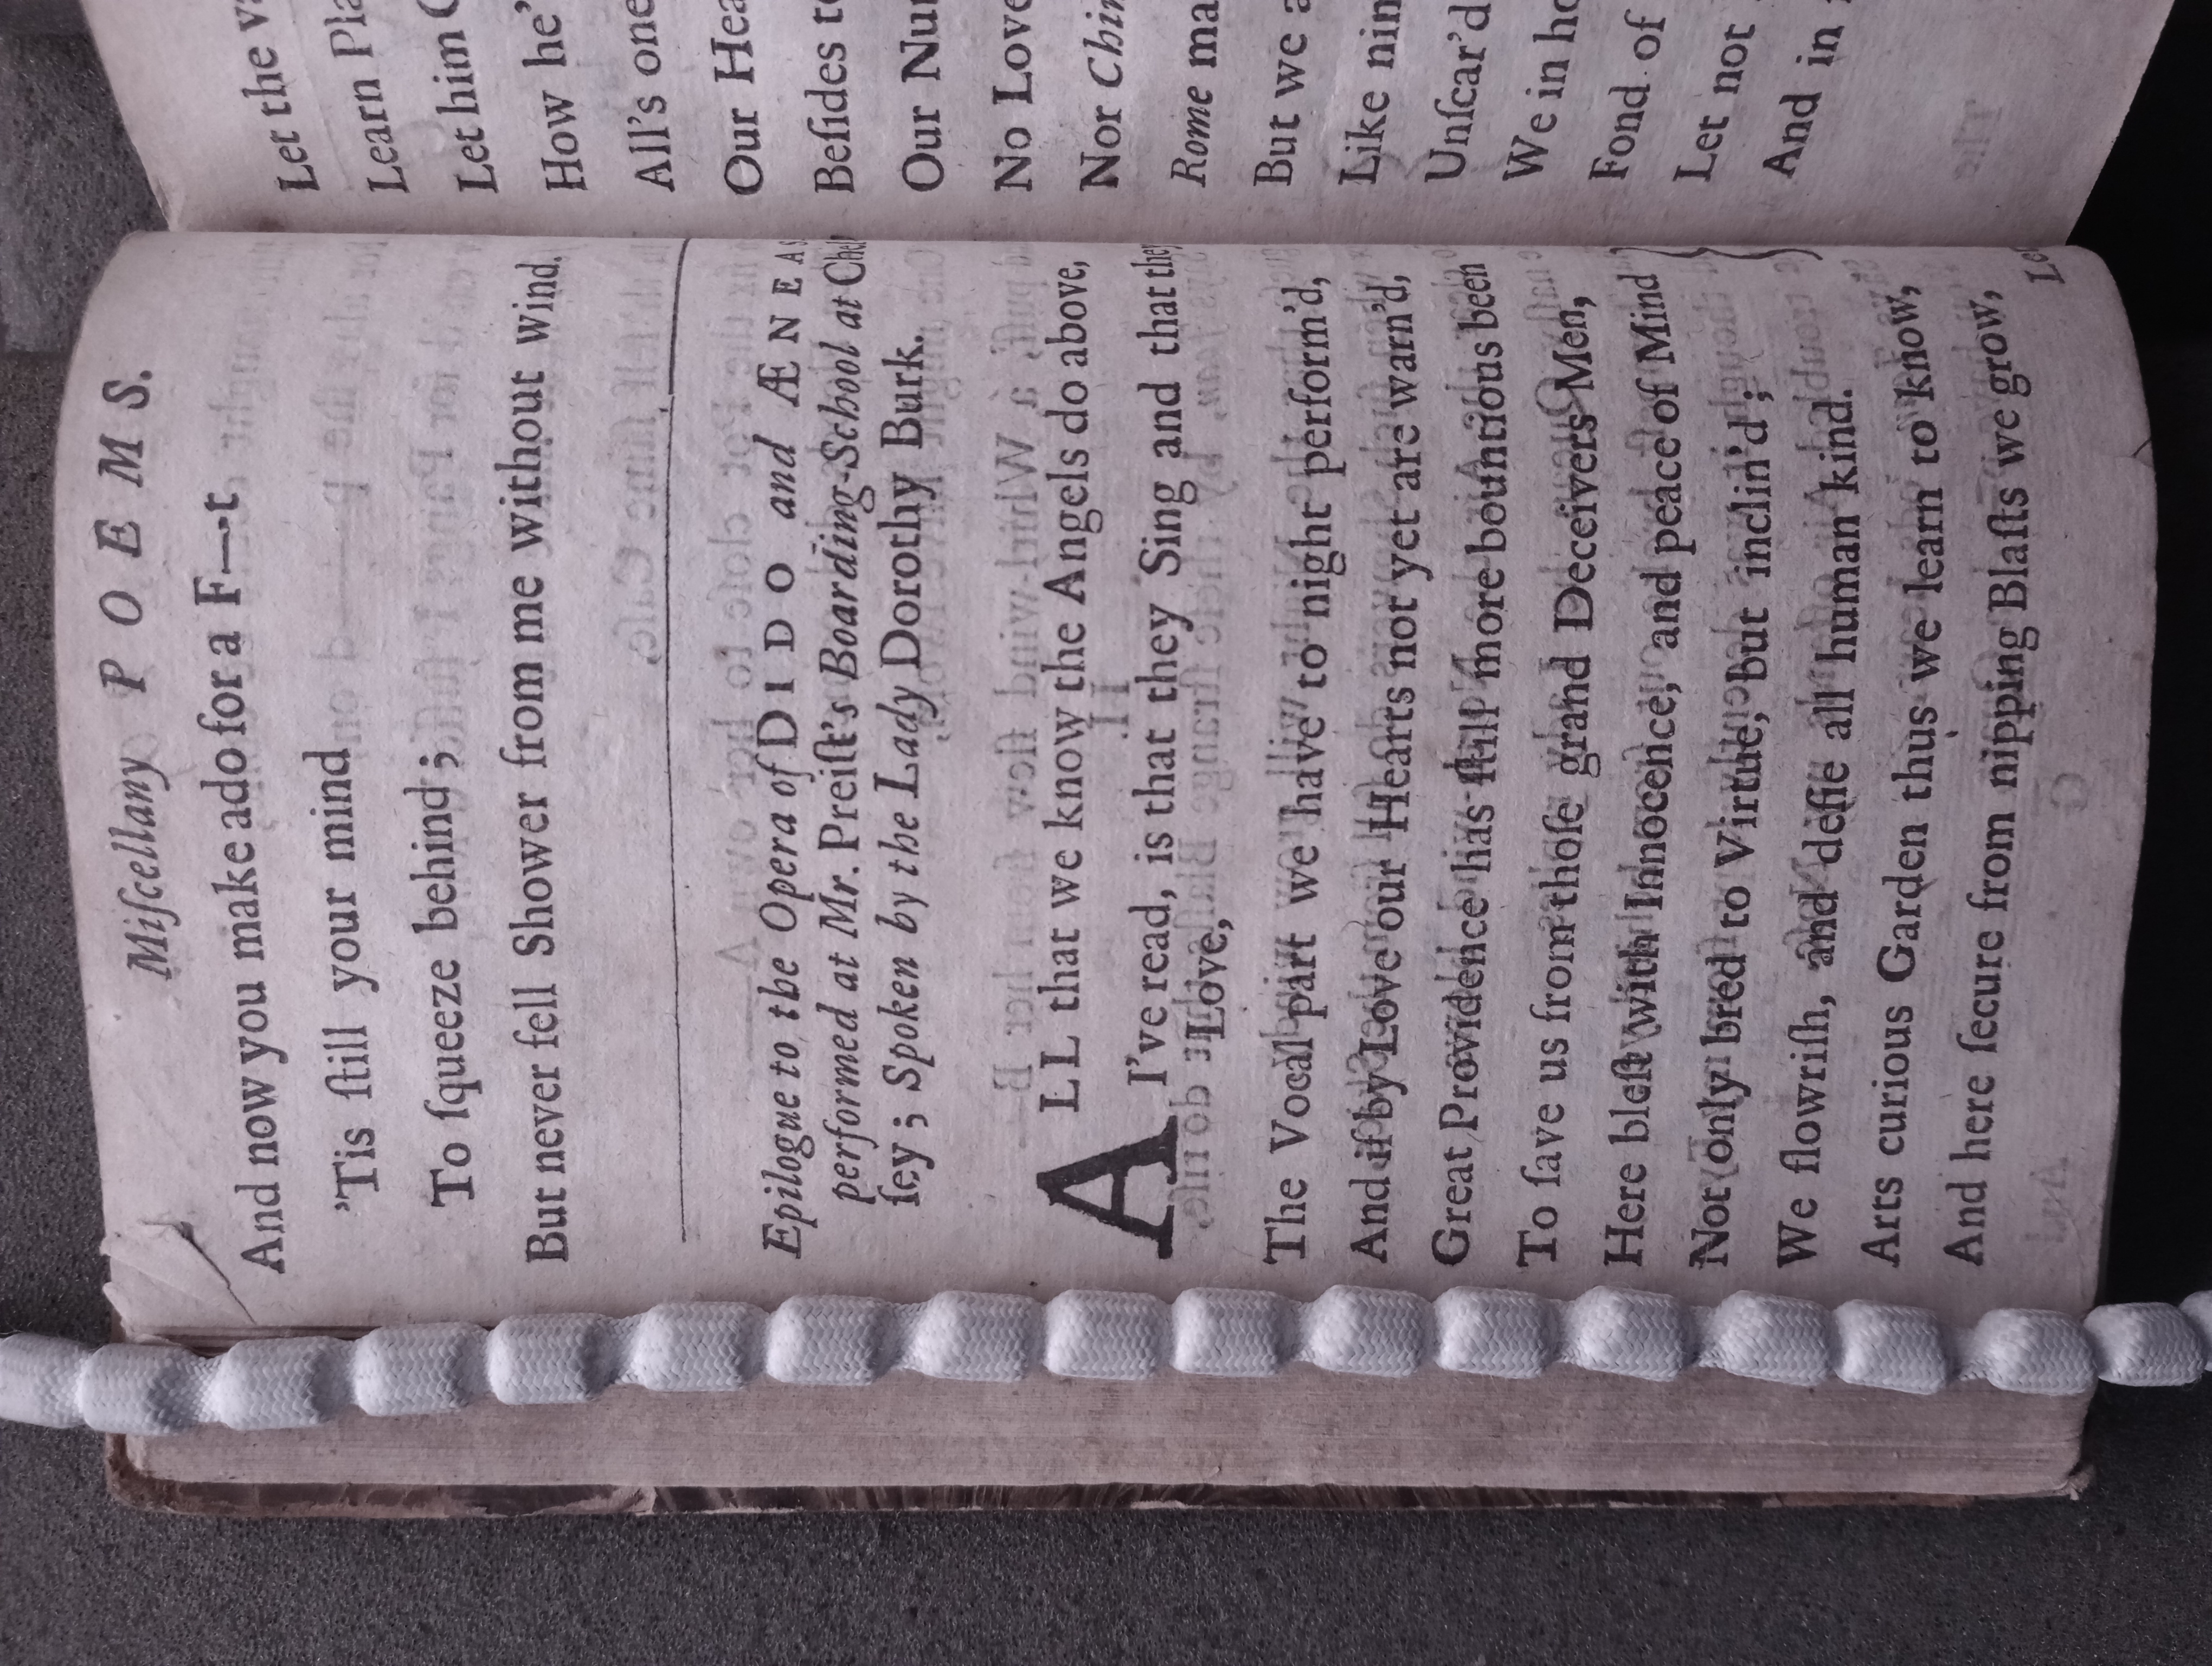 Miſcellany POEMS.
And now you make ado for a F—t
'Tis ſtill your mind
To ſqueeze behind;
But never fell Shower from me without wind.
Epilogue to the Opera of DIDO and ÆNEAS
performed at Mr. Preiſt's Boarding-School at Chel
ſey; Spoken by the Lady Dorothy Burk.
ALL that we know the Angels do above,
I've read, is that they Sing and that they
Love,
The Vocal part we have to night perform'd,
And if by Love our Hearts not yet are warn'd,
Great Providence has ſtill more bountious been
To ſave us from thoſe grand Deceivers Men,
Here bleſt with Innocence, and peace of Mind
Not only bred to Virtue, but inclin'd;
We flowriſh, and defie all human kind.
Arts curious Garden thus we learn to know,
And here ſecure from nipping Blaſts we grow,
Let
Let the
Learn
Let him
How he'
All's one
Our
Beſides
Our
No Love
Nor
Rome
But we
Like
Unſcar'd
We in
Fond of
Let not
And in